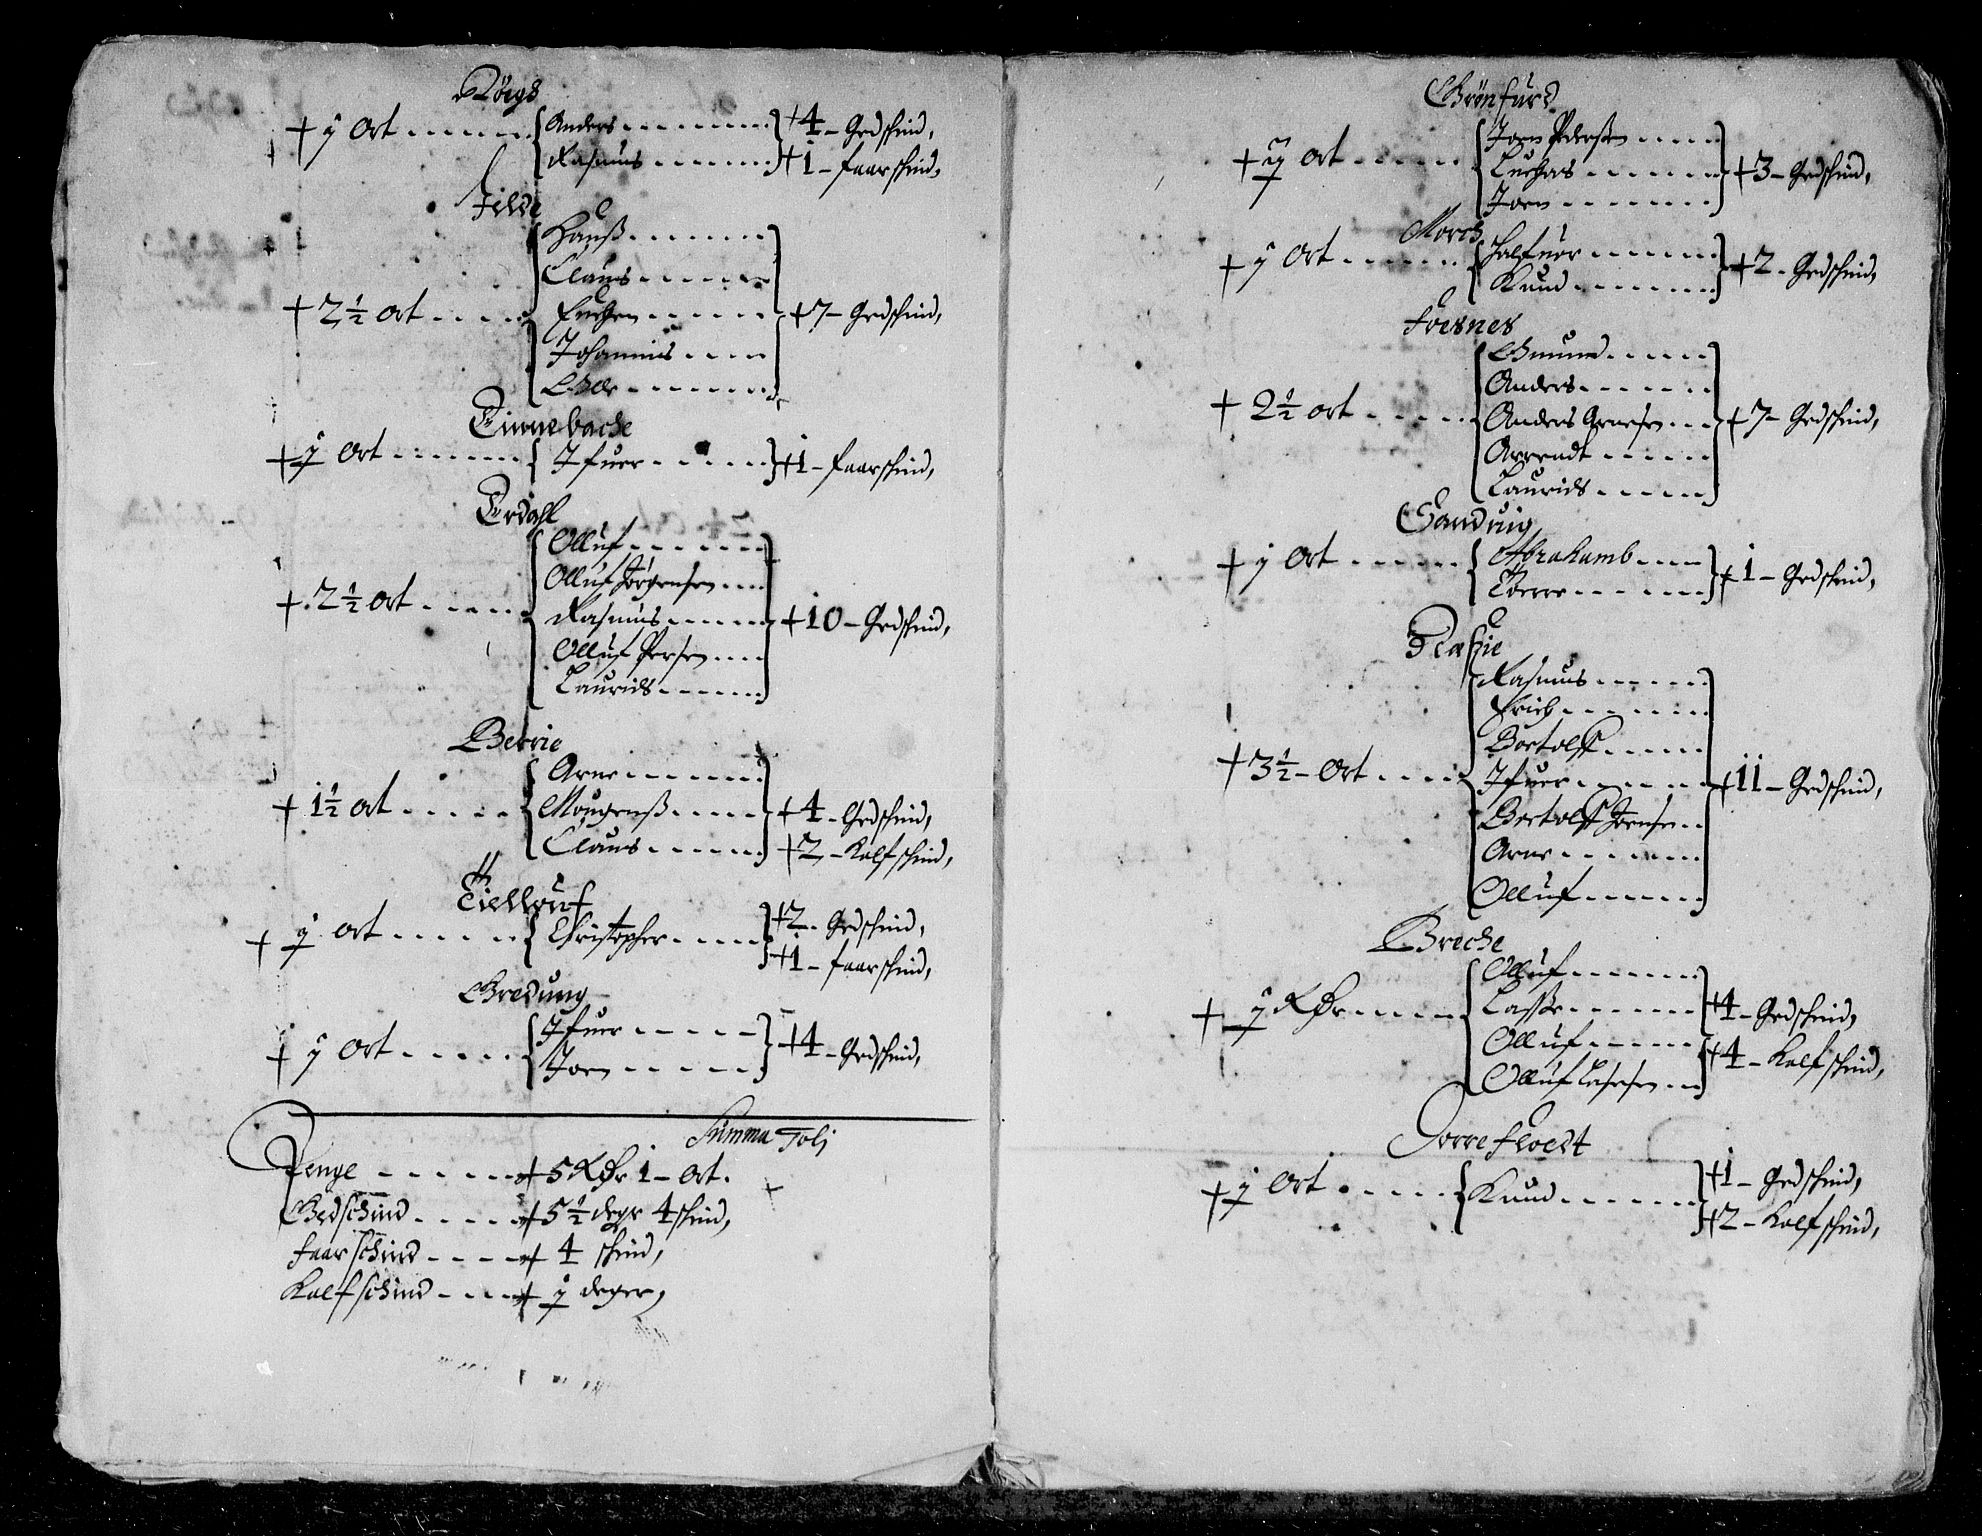 Røigs
+ ÿ Ort { Anders } + 4 - Gedschind,
Rasmus + 1 - faarschind,
Filde
Hanß
Claus
+ 2½ ort { Enchen } + 7 - Gedschind,
Johannis
Ole
Tinnebache
+ ÿ Ort { Ifuer } + 1 - faarschind,
Erdahl
Olluf
Olluf Jørgensen
+ 2½ ort { Rasmus } + 10 - Gedschind,
Olluf Persen
Laurids
Berrie
Arne
+ 1½ ort { Mougenß } + 4 - Gedschind,
Claus + 2 - Kalfschind,
+ ÿ ort { Christopher } + 2 - Gedschind,
+ 1 - faarschind,
Bredung
+ ÿ Ort { Ifuer } + 4 - Gedschind,
Joen
Summa Folj
Penge + 5 RDr 1 - ort.
Gedschind + 5½ degr 4 schind,
Faarschind + 4 schind,
Kalfschind + ÿ deger,
Grønfurd
Joen Pedersen
+ ÿ ort { Luchas } + 3 - Gedschind,
Joen
Morch
+ ÿ Ort { Halfuor } + 2 - Gedschind,
Knud
Foesnes
Gmund
Anders
+ 2½ ort { Anders } + 7 - Gedschind,
Arrendt
Laurids
Sanduig
+ ÿ Ort { Abrahamb } + 1 - Gedschind,
Toerre
Rasmus
Erich
Bertolff
+ 3½ - Ort { Ifuer } + 11 - Gedschind,
Bertolff Joensen
Arne
Olluf
Breche
Olluf
+ ÿ RDr { Lasse } + 4 - Gedschind,
Olluf + 4 - Kalfschind,
Olluf Lassesen
Torrefloedt
+ ÿ Ort { Knud } + 1 - Gedschind,
+ 2 - Kalfschind,